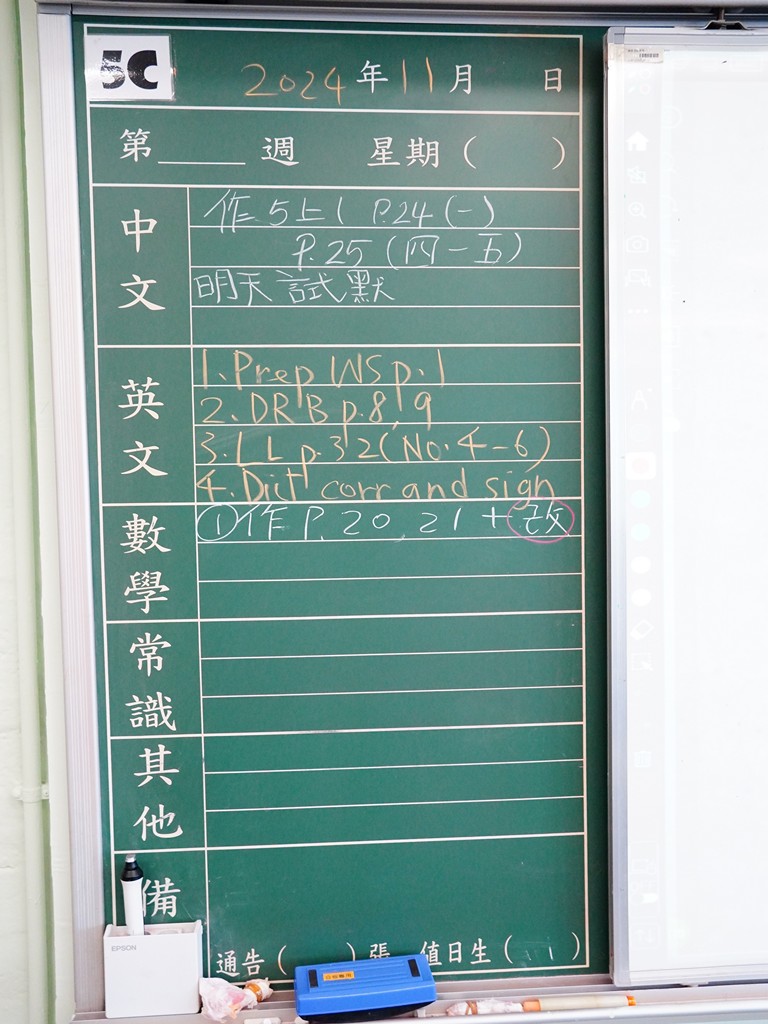 5C
2024年11月 日
第____週 星期( )
中文
作 5上1 P.24(一)
P.25(四-五)
明天試默
英文
1. Prep WS p.1
2. DRB p.8, 9
3. LL p.32(No.4-6)
4. Dict corr and sign
數學
①作 P.20 21 + 改
常識
其他
備
通告( )張 值日生( )
EPSON